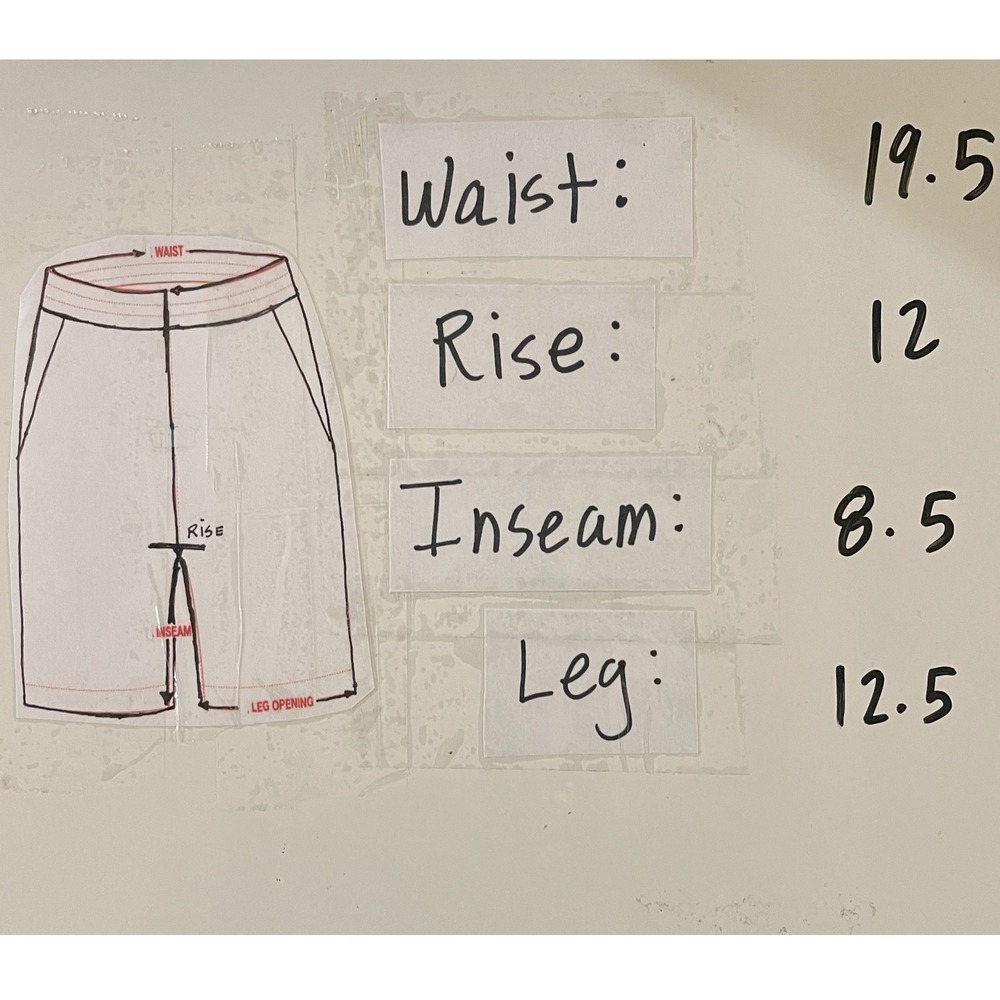 WAIST
RISE
INSEAM
LEG OPENING
Waist: 19.5
Rise: 12
Inseam: 8.5
Leg: 12.5